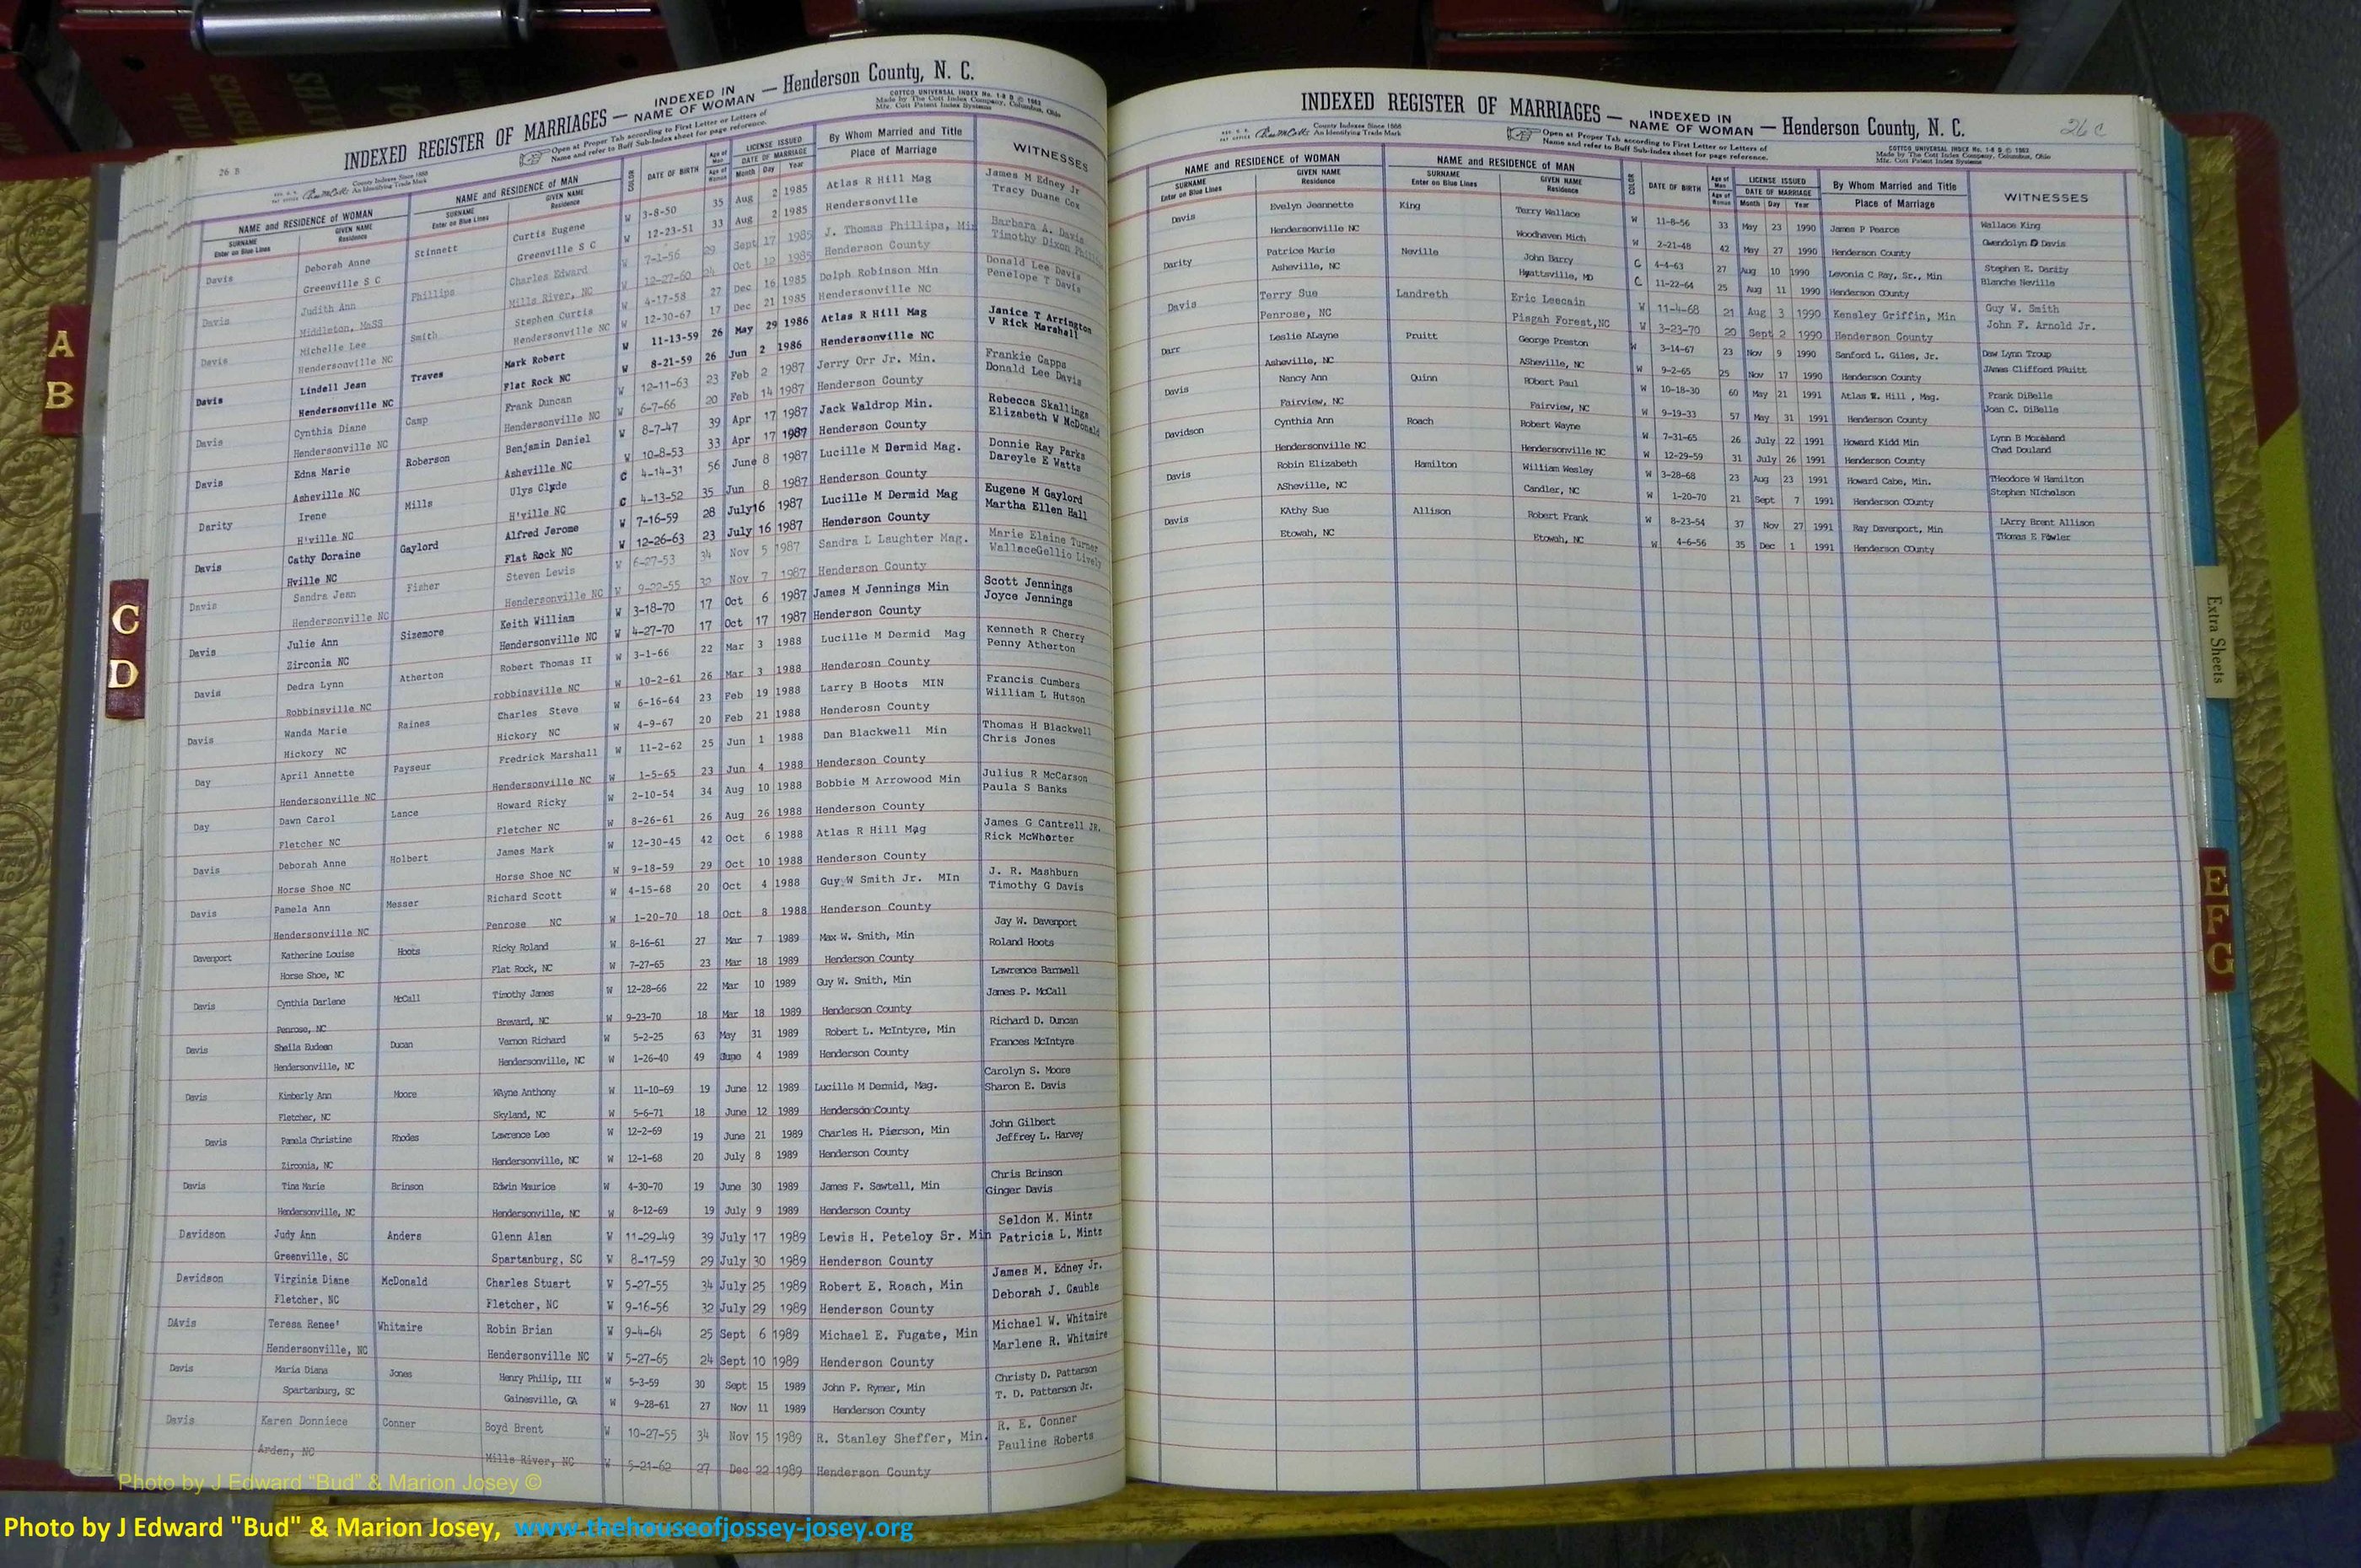 INDEXED REGISTER OF MARRIAGES — INDEXED IN NAME OF WOMAN — Henderson County, N. C.
26 B
County Indexes Since 1888
An Identifying Trade Mark
Open at Proper Tab according to First Letter or Letters of
Name and refer to Buff Sub-Index sheet for page reference.
COTTCO UNIVERSAL INDEX No. 1-8 B © 1963
Made by The Cott Index Company, Columbus, Ohio
Mfr. Cott Patent Index Systems
NAME and RESIDENCE of WOMAN NAME and RESIDENCE of MAN COLOR DATE OF BIRTH Age of Man LICENSE ISSUED By Whom Married and Title WITNESSES
SURNAME Enter on Blue Lines GIVEN NAME Residence SURNAME Enter on Blue Lines GIVEN NAME Residence Age of Woman DATE OF MARRIAGE Month Day Year Place of Marriage
Davis Deborah Anne Stinnett Curtis Eugene W 3-8-50 35 Aug 2 1985 Atlas R Hill Mag James M Edney Jr
Greenville S C Greenville S C W 12-23-51 33 Aug 2 1985 Hendersonville Tracy Duane Cox
Davis Judith Ann Phillips Charles Edward W 7-1-56 29 Sept 17 1985 J. Thomas Phillips, Min Barbara A. Davis
Middleton, MaSS Mills River, NC W 12-27-60 24 Oct 12 1985 Henderson County Timothy Dixon Phillips
Davis Michelle Lee Smith Stephen Curtis W 4-17-58 27 Dec 16 1985 Dolph Robinson Min Donald Lee Davis
Hendersonville NC Hendersonville NC W 12-30-67 17 Dec 21 1985 Hendersonville NC Penelope T Davis
Davis Lindell Jean Traves Mark Robert W 11-13-59 26 May 29 1986 Atlas R Hill Mag Janice T Arrington
Hendersonville NC Flat Rock NC W 8-21-59 26 Jun 2 1986 Hendersonville NC V Rick Marshall
Davis Cynthia Diane Camp Frank Duncan W 12-11-63 23 Feb 2 1987 Jerry Orr Jr. Min. Frankie Capps
Hendersonville NC Hendersonville NC W 6-7-66 20 Feb 14 1987 Henderson County Donald Lee Davis
Davis Edna Marie Roberson Benjamin Daniel W 8-7-47 39 Apr 17 1987 Jack Waldrop Min. Rebecca Skallings
Asheville NC Asheville NC W 10-8-53 33 Apr 17 1987 Henderson County Elizabeth W McDonald
Darity Irene Mills Ulys Clyde C 4-14-31 56 June 8 1987 Lucille M Dermid Mag. Donnie Ray Parks
H'ville NC H'ville NC C 4-13-52 35 Jun 8 1987 Henderson County Dareyle E Watts
Davis Cathy Doraine Gaylord Alfred Jerome W 7-16-59 28 July 16 1987 Lucille M Dermid Mag Eugene M Gaylord
Hville NC Flat Rock NC W 12-26-63 23 July 16 1987 Henderson County Martha Ellen Hall
Davis Sandra Jean Fisher Steven Lewis W 6-27-53 34 Nov 5 1987 Sandra L Laughter Mag. Marie Elaine Turner
Hendersonville NC Hendersonville NC W 9-22-55 32 Nov 7 1987 Henderson County WallaceGellio Lively
Davis Julie Ann Sizemore Keith William W 3-18-70 17 Oct 6 1987 James M Jennings Min Scott Jennings
Zirconia NC Hendersonville NC W 4-27-70 17 Oct 17 1987 Henderson County Joyce Jennings
Davis Dedra Lynn Atherton Robert Thomas II W 3-1-66 22 Mar 3 1988 Lucille M Dermid Mag Kenneth R Cherry
Robbinsville NC robbinsville NC W 10-2-61 26 Mar 3 1988 Henderosn County Penny Atherton
Davis Wanda Marie Raines Charles Steve W 6-16-64 23 Feb 19 1988 Larry B Hoots MIN Francis Cumbers
Hickory NC Hickory NC W 4-9-67 20 Feb 21 1988 Henderosn County William L Hutson
Day April Annette Payseur Fredrick Marshall W 11-2-62 25 Jun 1 1988 Dan Blackwell Min Thomas H Blackwell
Hendersonville NC Hendersonville NC W 1-5-65 23 Jun 4 1988 Henderson County Chris Jones
Day Dawn Carol Lance Howard Ricky W 2-10-54 34 Aug 10 1988 Bobbie M Arrowood Min Julius R McCarson
Fletcher NC Fletcher NC W 8-26-61 26 Aug 26 1988 Henderson County Paula S Banks
Davis Deborah Anne Holbert James Mark W 12-30-45 42 Oct 6 1988 Atlas R Hill Mag James G Cantrell JR.
Horse Shoe NC Horse Shoe NC W 9-18-59 29 Oct 10 1988 Henderson County Rick McWhorter
Davis Pamela Ann Messer Richard Scott W 4-15-68 20 Oct 4 1988 Guy W Smith Jr. MIn J. R. Mashburn
Hendersonville NC Penrose NC W 1-20-70 18 Oct 8 1988 Henderson County Timothy G Davis
Davenport Katherine Louise Hoots Ricky Roland W 8-16-61 27 Mar 7 1989 Max W. Smith, Min Jay W. Davenport
Horse Shoe, NC Flat Rock, NC W 7-27-65 23 Mar 18 1989 Henderson County Roland Hoots
Davis Cynthia Darlene McCall Timothy James W 12-28-66 22 Mar 10 1989 Guy W. Smith, Min Lawrence Barnwell
Penrose, NC Brevard, NC W 9-23-70 18 Mar 18 1989 Henderson County James P. McCall
Davis Sheila Eudean Ducan Vernon Richard W 5-2-25 63 May 31 1989 Robert L. McIntyre, Min Richard D. Duncan
Hendersonville, NC Hendersonville, NC W 1-26-40 49 June 4 1989 Henderson County Frances McIntyre
Davis Kimberly Ann Moore WAyne Anthony W 11-10-69 19 June 12 1989 Lucille M Dermid, Mag. Carolyn S. Moore
Fletcher, NC Skyland, NC W 5-6-71 18 June 12 1989 Henderson County Sharon E. Davis
Davis Pamela Christine Rhodes Lawrence Lee W 12-2-69 19 June 21 1989 Charles H. Pierson, Min John Gilbert
Zirconia, NC Hendersonville, NC W 12-1-68 20 July 8 1989 Henderson County Jeffrey L. Harvey
Davis Tina Marie Brinson Edwin Maurice W 4-30-70 19 June 30 1989 James F. Sawtell, Min Chris Brinson
Hendersonville, NC Hendersonville, NC W 8-12-69 19 July 9 1989 Henderson County Ginger Davis
Davidson Judy Ann Anders Glenn Alan W 11-29-49 39 July 17 1989 Lewis H. Peteloy Sr. Min Seldon M. Mintz
Greenville, SC Spartanburg, SC W 8-17-59 29 July 30 1989 Henderson County Patricia L. Mintz
Davidson Virginia Diane McDonald Charles Stuart W 5-27-55 34 July 25 1989 Robert E. Roach, Min James M. Edney Jr.
Fletcher, NC Fletcher, NC W 9-16-56 32 July 29 1989 Henderson County Deborah J. Gauble
DAvis Teresa Renee' Whitmire Robin Brian W 9-4-64 25 Sept 6 1989 Michael E. Fugate, Min Michael W. Whitmire
Hendersonville, NC Hendersonville NC W 5-27-65 24 Sept 10 1989 Henderson County Marlene R. Whitmire
Davis Maria Diana Jones Henry Philip, III W 5-3-59 30 Sept 15 1989 John F. Rymer, Min Christy D. Patterson
Spartanburg, SC Gainesville, GA W 9-28-61 27 Nov 11 1989 Henderson County T. D. Patterson Jr.
Davis Karen Donniece Conner Boyd Brent W 10-27-55 34 Nov 15 1989 R. Stanley Sheffer, Min. R. E. Conner
Arden, NC Mills River, NC W 5-21-62 27 Dec 22 1989 Henderson County Pauline Roberts
INDEXED REGISTER OF MARRIAGES — INDEXED IN NAME OF WOMAN — Henderson County, N. C.
26 C
County Indexes Since 1888
An Identifying Trade Mark
Open at Proper Tab according to First Letter or Letters of
Name and refer to Buff Sub-Index sheet for page reference.
COTTCO UNIVERSAL INDEX No. 1-8 B © 1963
Made by The Cott Index Company, Columbus, Ohio
Mfr. Cott Patent Index Systems
NAME and RESIDENCE OF WOMAN NAME and RESIDENCE OF MAN COLOR DATE OF BIRTH Age of Man LICENSE ISSUED By Whom Married and Title WITNESSES
SURNAME Enter on Blue Lines GIVEN NAME Residence SURNAME Enter on Blue Lines GIVEN NAME Residence Age of Woman DATE OF MARRIAGE Month Day Year Place of Marriage
Davis Evelyn Jeannette King Terry Wallace W 11-8-56 33 May 23 1990 James P Pearce Wallace King
Hendersonville NC Woodhaven Mich W 2-21-48 42 May 27 1990 Henderson County Gwendolyn D Davis
Darity Patrice Marie Neville John Barry C 4-4-63 27 Aug 10 1990 Levonia C Ray, Sr., Min Stephen E. Darity
Asheville, NC Hyattsville, MD C 11-22-64 25 Aug 11 1990 Henderson COunty Blanche Neville
Davis Terry Sue Landreth Eric Leecain W 11-4-68 21 Aug 3 1990 Kensley Griffin, Min Guy W. Smith
Penrose, NC Pisgah Forest,NC W 3-23-70 20 Sept 2 1990 Henderson County John F. Arnold Jr.
Darr Leslie ALayne Pruitt George Preston W 3-14-67 23 Nov 9 1990 Sanford L. Giles, Jr. Daw Lynn Troup
Asheville, NC ASheville, NC W 9-2-65 25 Nov 17 1990 Henderson County JAmes Clifford PRuitt
Davis Nancy Ann Quinn RObert Paul W 10-18-30 60 May 21 1991 Atlas R. Hill , Mag. Frank DiBelle
Fairview, NC Fairview, NC W 9-19-33 57 May 31 1991 Henderson County Joan C. DiBelle
Davidson Cynthia Ann Roach Robert Wayne W 7-31-65 26 July 22 1991 Howard Kidd Min Lynn B Moreland
Hendersonville NC Hendersonville NC W 12-29-59 31 July 26 1991 Henderson County Chad Douland
Davis Robin Elizabeth Hamilton William Wesley W 3-28-68 23 Aug 23 1991 Howard Cabe, Min. THeodore W Hamilton
ASheville, NC Candler, NC W 1-20-70 21 Sept 7 1991 Henderson COunty Stephen NIcholson
Davis KAthy Sue Allison Robert Frank W 8-23-54 37 Nov 27 1991 Ray Davenport, Min LArry Brent Allison
Etowah, NC Etowah, NC W 4-6-56 35 Dec 1 1991 Henderson COunty THomas E Fowler
A
B
C
D
Extra Sheets
E
F
G
Photo by J Edward "Bud" & Marion Josey ©
Photo by J Edward "Bud" & Marion Josey, www.thehouseofjossey-josey.org